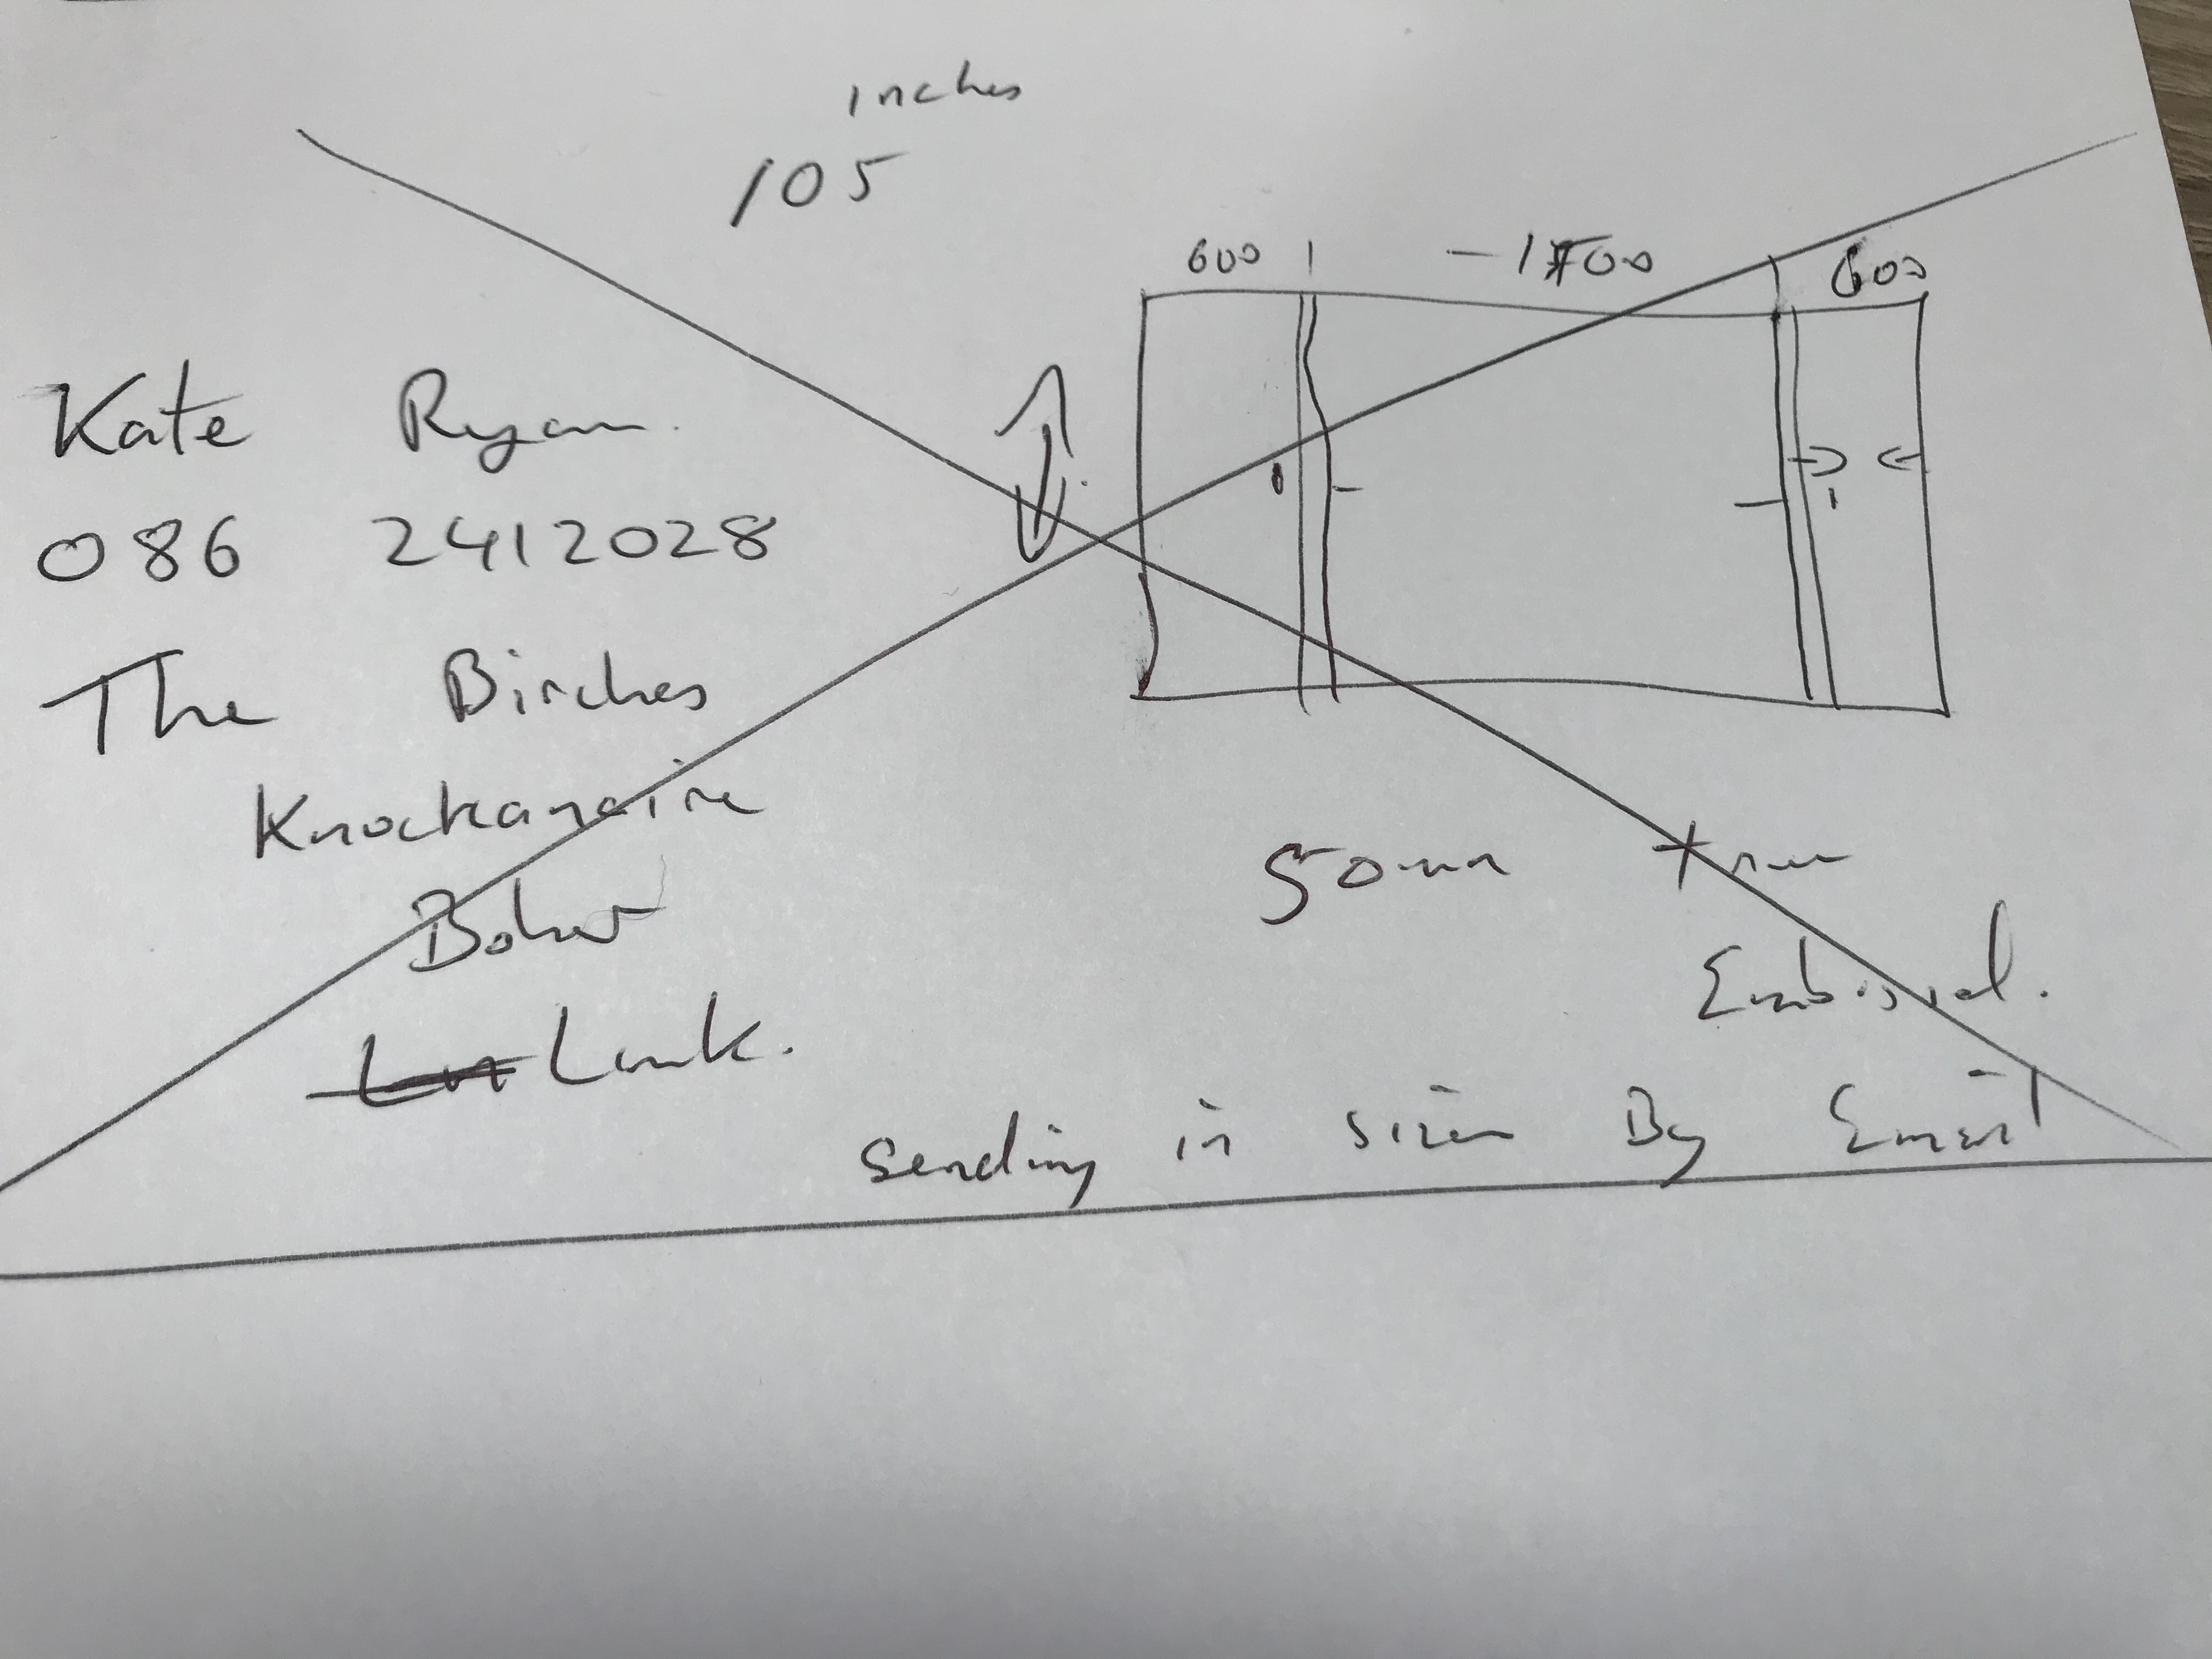 inches
105
600 - 1500 600
Kate Ryan.
086 2412028
The Birches
Knockanaire
Boher
Limk.
50mm
sending in sizes By Email